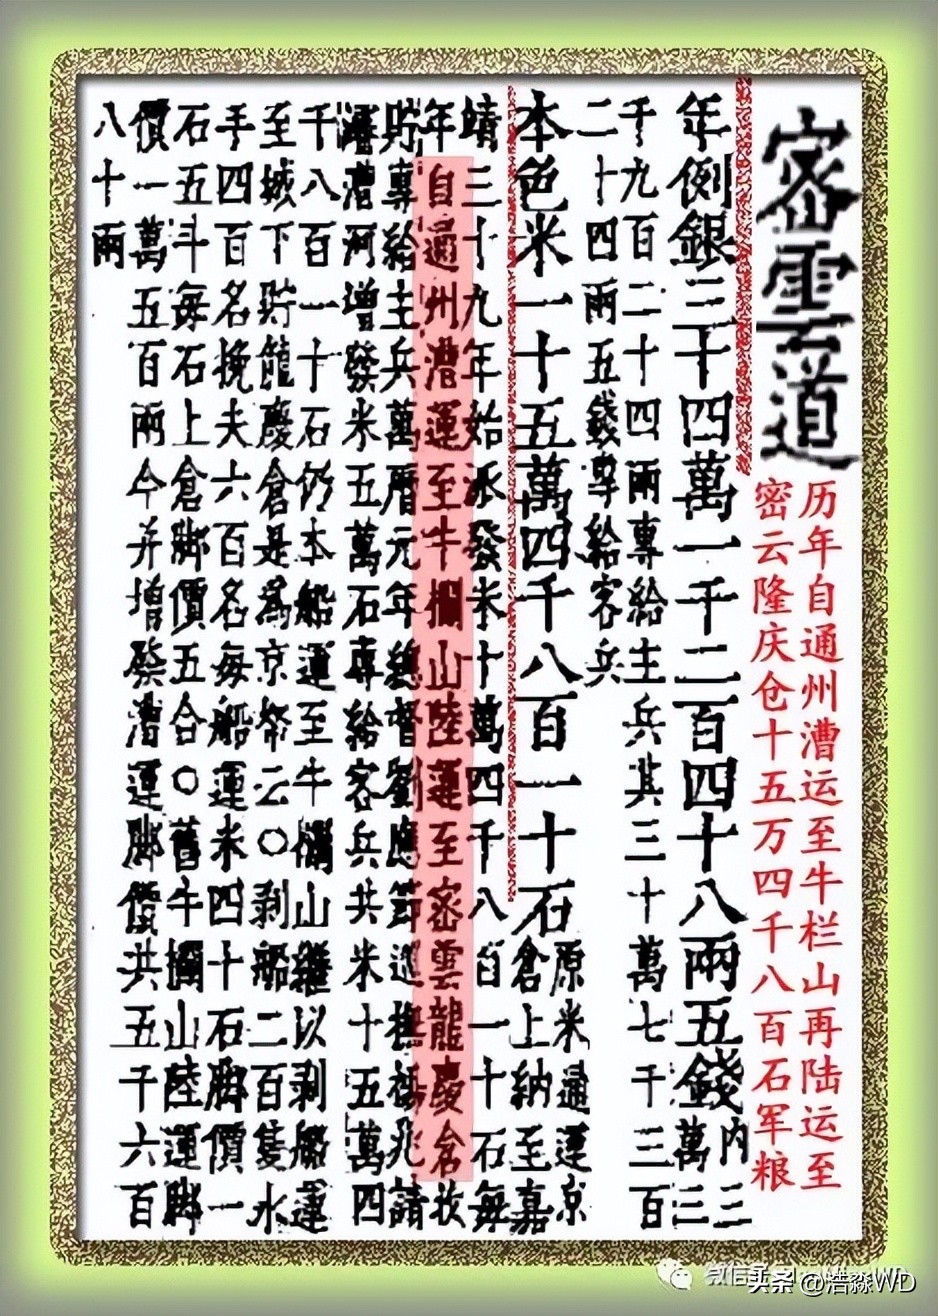 密雲道
历年自通州漕运至牛栏山再陆运至
密云隆庆仓十五万四千八百石军粮
年例銀三十四萬一千二百四十八兩五錢內三
萬三
千九百二十四兩專給主兵其三十萬七千三百
二十四兩五錢專給客兵
本色米一十五萬四千八百一十石原米通運京
倉上納至嘉
靖三十九年始派發米十萬四千八百一十石每
年自通州漕運至牛欄山陸運至密雲龍慶倉收
貯專給主兵萬曆元年總督劉應節巡撫楊兆請
濬漕河增發米五萬石專給客兵共米十五萬四
千八百一十石仍本船運至牛欄山繼以剥船運
至城下貯龍慶倉是為京云○剥船二百隻水
手四百名挽夫六百名每船運米四十石脚價一
石五斗每石上倉脚價五合○舊牛欄山陸運脚
價一萬五百兩今并增發漕運脚價共五千六百
八十兩
头条 @浩淼WD